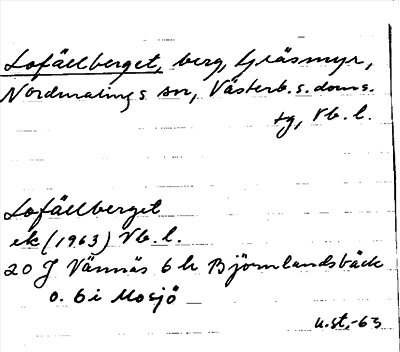 Lofällberget, berg, Gräsmyr,
Nordmalings sn, Västerb. s. doms.
tg, Vb. l.
Lofällberget
ek (1963) Vb. l.
20 J Vännäs 6 h Björnlandsbäck
o. 6 i Mosjö
u.st.-63